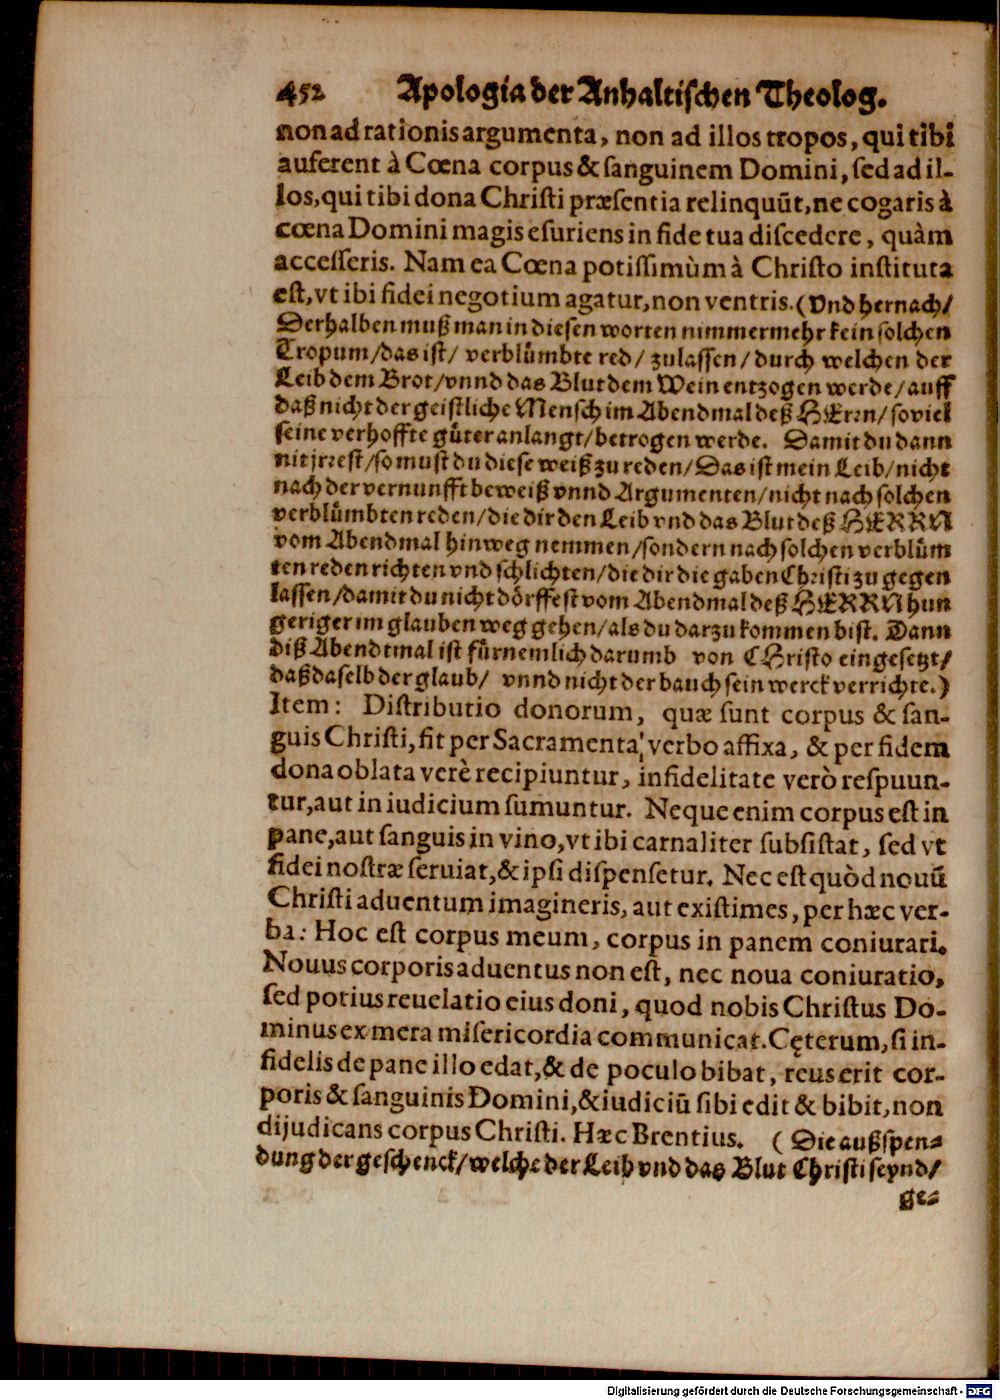 452 Apologia der Anhaltischen Theolog.
non ad rationis argumenta, non ad illos tropos, qui tibi
auferent à Cœna corpus & sanguinem Domini, sed ad il-
los, qui tibi dona Christi præsentia relinquūt, ne cogaris à
cœna Domini magis esuriens in fide tua discedere, quàm
accesseris. Nam ea Cœna potissimùm à Christo instituta
est, vt ibi fidei negotium agatur, non ventris. (Vnd hernach/
Derhalben muß man in diesen worten nimmermehr kein solchen
Tropum/das ist/ verblůmbte red/ zulassen/durch welchen der
Leib dem Brot/vnnd das Blut dem Wein entzogen werde/auff
daß nicht der geistliche Mensch im Abendmal deß HErrn/so viel
seine verhoffte gůter anlangt/betrogen werde. Damit du dann
nit jrrest/so must du diese weiß zu reden/Das ist mein Leib/nicht
nach der vernunfft beweiß vnnd Argumenten/nicht nach solchen
verblůmbten reden/die dir den Leib vnd das Blut deß HERRN
vom Abendmal hinweg nemmen/sondern nach solchen verblům
ten reden richten vnd schlichten/die dir die gaben Christi zu gegen
lassen/damit du nicht dörffest vom Abendmal deß HERRN hun
geriger im glauben weg gehen/als du darzu kommen bist. Dann
diß Abendtmal ist fůrnemlich darumb von CHristo eingesetzt/
daß daselb der glaub/ vnnd nicht der bauch sein werck verrichte.)
Item: Distributio donorum, quæ sunt corpus & san-
guis Christi, fit per Sacramenta verbo affixa, & per fidem
dona oblata verè recipiuntur, infidelitate verò respuun-
tur, aut in iudicium sumuntur. Neque enim corpus est in
pane, aut sanguis in vino, vt ibi carnaliter subsistat, sed vt
fidei nostræ seruiat, & ipsi dispensetur. Nec est quòd nouū
Christi aduentum imagineris, aut existimes, per hæc ver-
ba: Hoc est corpus meum, corpus in panem coniurari.
Nouus corporis aduentus non est, nec noua coniuratio,
sed potius reuelatio eius doni, quod nobis Christus Do-
minus ex mera misericordia communicat. Cęterum, si in-
fidelis de pane illo edat, & de poculo bibat, reus erit cor-
poris & sanguinis Domini, & iudiciū sibi edit & bibit, non
dijudicans corpus Christi. Hæc Brentius. (Die außspen-
dung der geschenck/welche der Leib vnd das Blut Christi seynd/
ge-
Digitalisierung gefördert durch die Deutsche Forschungsgemeinschaft - DFG